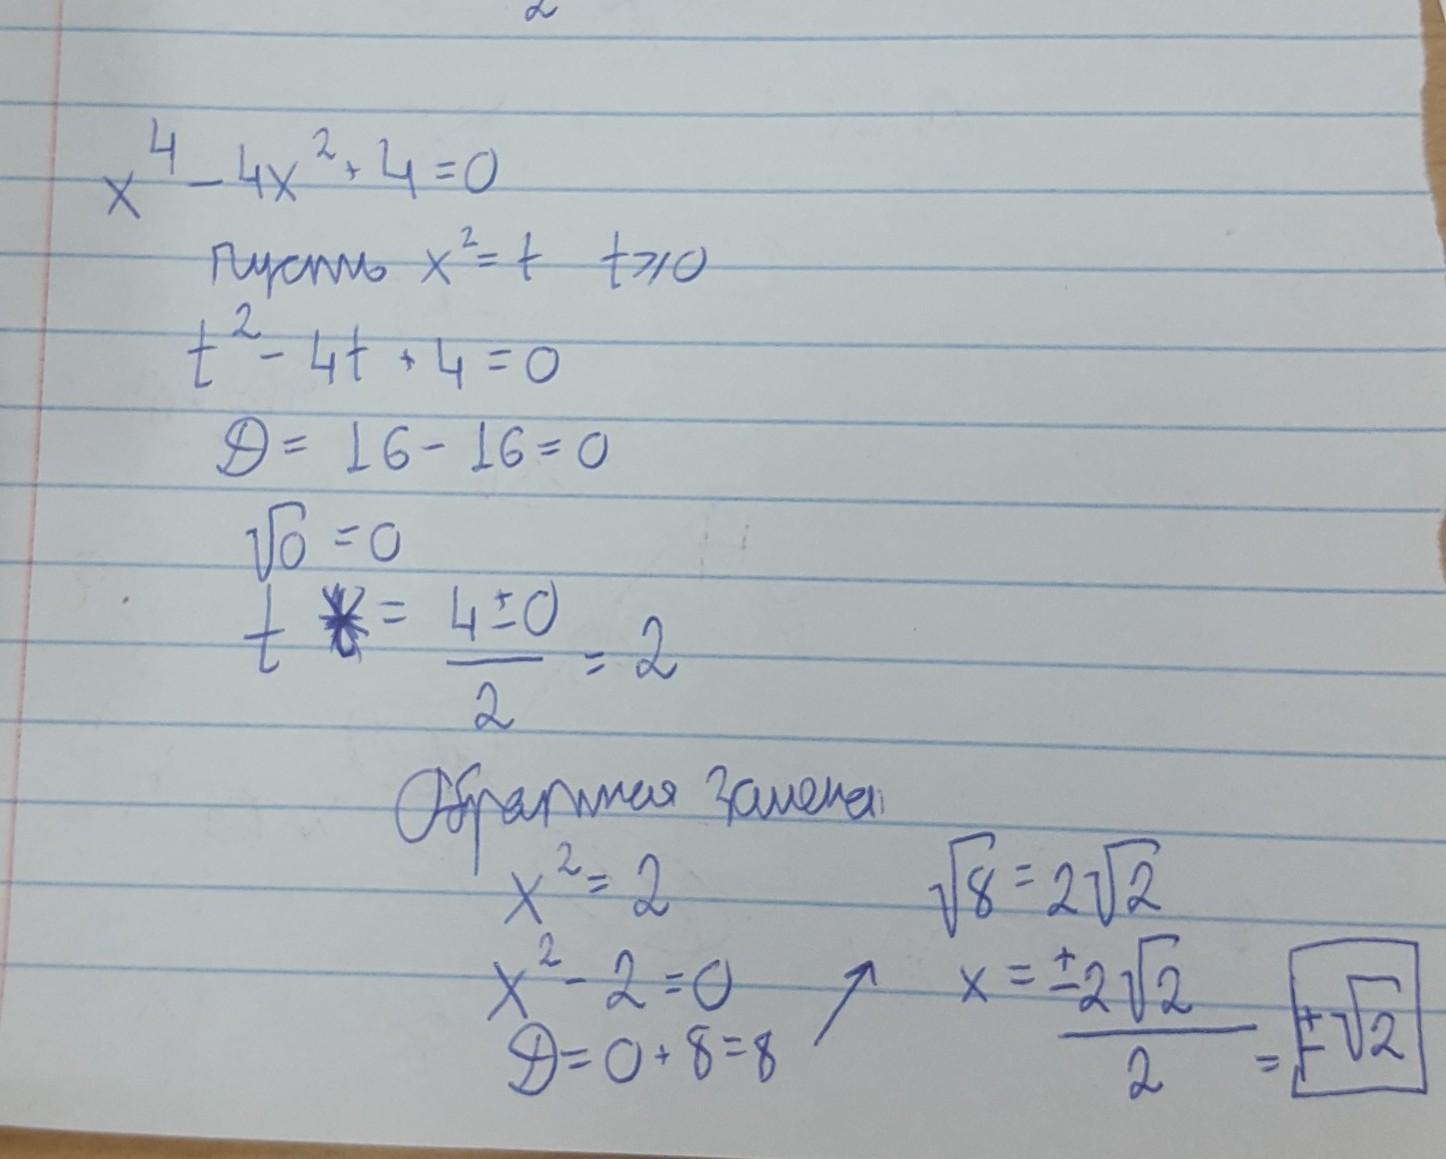 2
x⁴ - 4x² + 4 = 0
пусть x² = t t ⩾ 0
t² - 4t + 4 = 0
D = 16 - 16 = 0
√0 = 0
t = (4 ± 0)/2 = 2
Обратная замена:
x² = 2
x² - 2 = 0
D = 0 + 8 = 8 ↗
√8 = 2√2
x = ±2√2/2 = ±√2